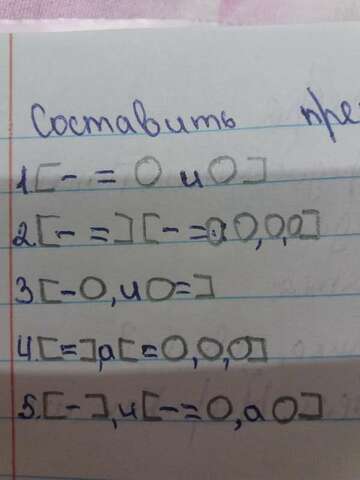 Составить пре
1[- = O и O]
2[- =][- = O, O, O]
3[- O, и O =]
4.[=], а [= O, O, O]
5.[-], и [- = O, а O]